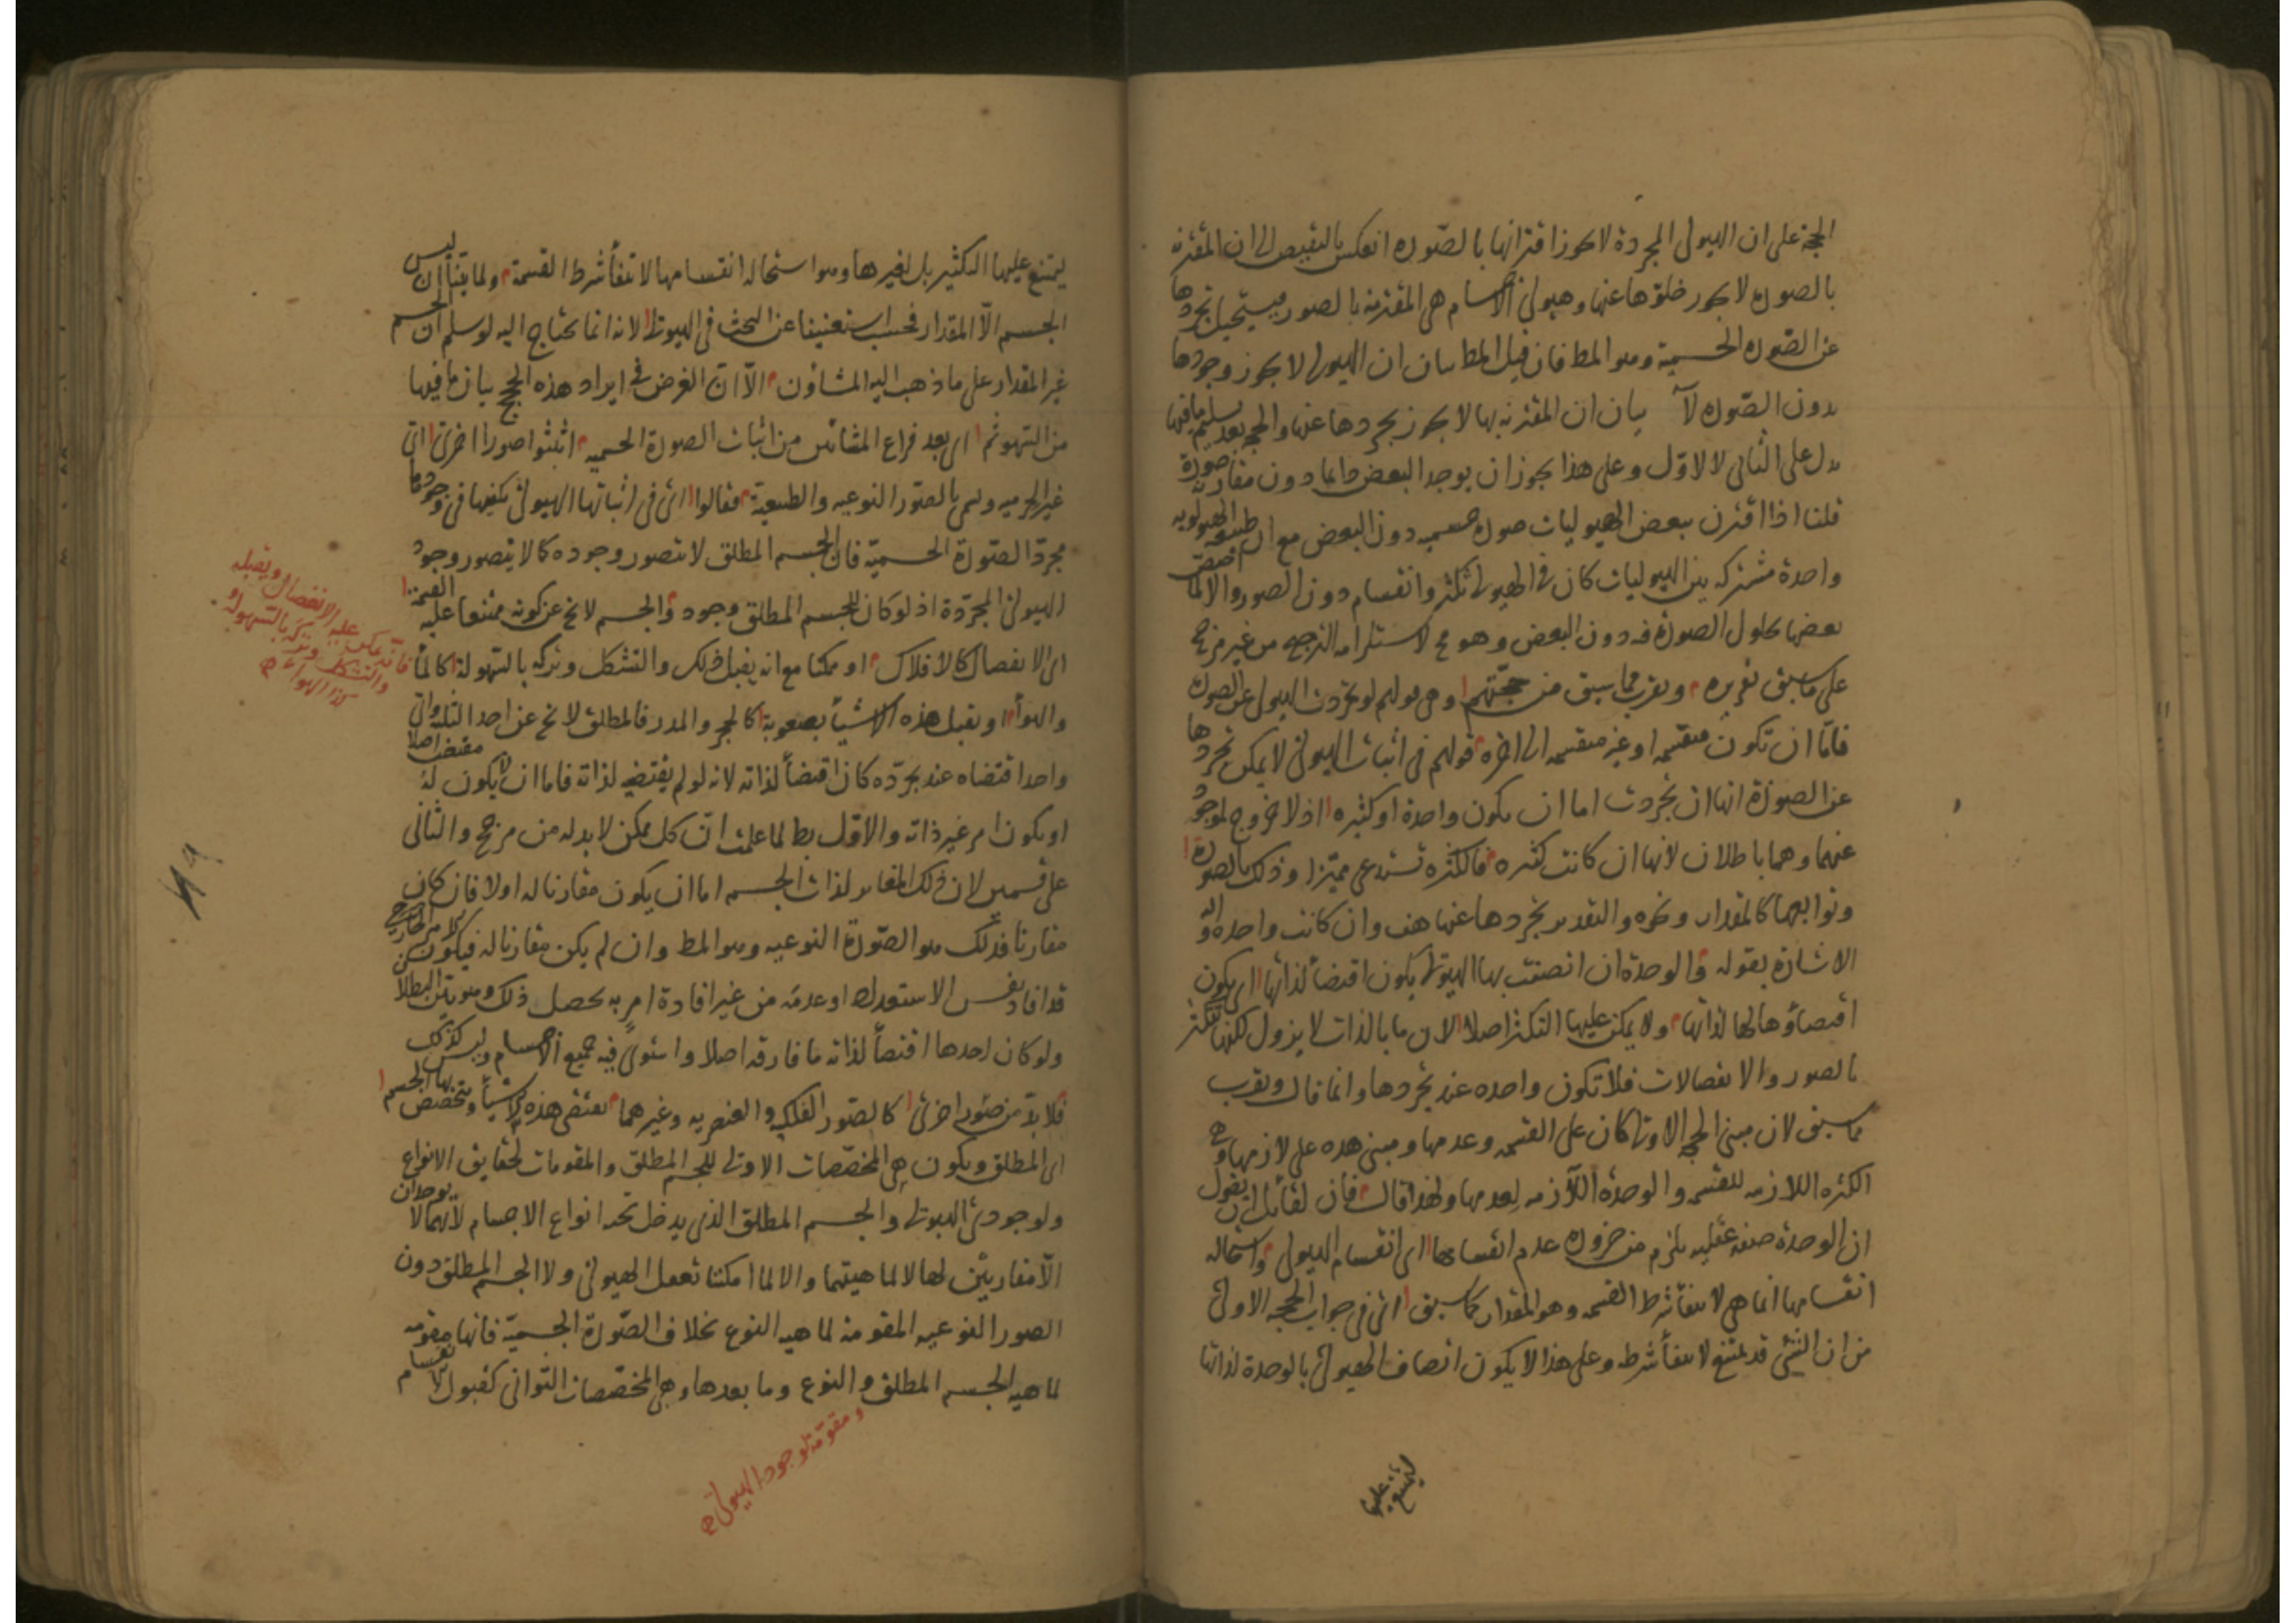 الحجة على ان الهيولى المجردة لا يجوز اقترانها بالصورة انعكس بالنقيض الى ان المقترنة
بالصورة لا يجوز خلوها عنها وهيولى الاجسام هى المقترنة بالصور فيستحيل تجردها
عن الصورة الجسمية وهو المط فان قيل المط بيان ان الهيولى لا يجوز وجودها
بدون الصورة لا بيان ان المقترنة بها لا يجوز تجردها عنها والحجة بعد تسليم ما فيها
تدل على الثانى لا الاول وعلى هذا يجوز ان يوجد البعض دائما دون مقارنة صورة
قلنا اذا اقترن ببعض الهيوليات صورة جسمية دون البعض مع ان طبيعة الهيولوية
واحدة مشتركة بين الهيوليات كان فى الهيولى تكثر وانقسام دون الصور والا لما اختص
بعضها بحلول الصورة فيه دون البعض وهو مح لاستلزامه الترجيح من غير مرجح
على ما سبق تقريره ويقرب مما سبق من حجتهم وهى قولهم لو تجردت الهيولى عن الصورة
فاما ان تكون منقسمة او غير منقسمة الى اخره قولهم فى اثبات الهيولى لا يمكن تجردها
عن الصورة انها ان تجردت اما ان يكون واحدة او كثيرة اذ لا خروج لموجود
عنهما وهما باطلان لانها ان كانت كثيرة فالكثرة تستدعى مميزا وذلك بالصورة
وتوابعها كالمقدار ونحوه والتقدير تجردها عنها هف وان كانت واحدة واليه
الاشارة بقوله والوحدة ان اتصفت بها الهيولى يكون اقتضاء لذاتها اى يكون
اقتضاؤها لها لذاتها ولا يمكن عليها التكثر اصلا لان ما بالذات لا يزول لكنها تتكثر
بالصور والانفصالات فلا تكون واحدة عند تجردها وانما قال ويقرب
مما سبق لان مبنى الحجة الاولى كان على القسمة وعدمها ومبنى هذه على لازمها وهى
الكثرة اللازمة للقسمة والوحدة اللازمة لعدمها ولهذا قال فان لقائل ان يقول
ان الوحدة صفة عقلية يلزم من ضرورة عدم انقسامها اى انقسام الهيولى واستحالة
انقسامها انما هى لانتفاء شرط القسمة وهو المقدار كما سبق اى فى جواب الحجة الاولى
من ان الشئ قد يمتنع لانتفاء شرطه وعلى هذا لا يكون اتصاف الهيولى بالوحدة لذاتها
ليمتنع عليها
ليمتنع عليها التكثير بل لغيرها وهو استحالة انقسامها لانتفاء شرط القسمة ولما بينا ان ليس
الجسم الا المقدار فحسب استغنينا عن البحث فى الهيولى لانه انما يحتاج اليه لو سلم ان الجسم
غير المقدار على ما ذهب اليه المشاؤن الا ان الغرض فى ايراد هذه الحجج بيان ما فيها
من السهو ثم اى بعد فراغ المشائين من اثبات الصورة الجسمية اثبتوا صورا اخرى اى
غير الجرمية وتسمى بالصور النوعية والطبيعية فقالوا اى فى اثباتها الهيولى يكفيها فى وجودها
مجرد الصورة الجسمية فان الجسم المطلق لا يتصور وجوده كما لا يتصور وجود
الهيولى المجردة اذ لو كان للجسم المطلق وجود والجسم لا يخ عن كونه ممتنعا عليه القسمة
اى الانفصال كالافلاك او ممكنا مع انه يقبل ذلك والتشكل وتركه بالسهولة كالماء
والهواء او يقبل هذه الاشياء بصعوبة كالحجر والمدر فالمطلق لا يخ عن احد الثلثة واى
واحد اقتضاه عند تجرده كان اقتضاء لذاته لانه لو لم يقتضيه لذاته فاما ان لا يكون له مقتض اصلا
او يكون امر غير ذاته والاول بط لما علمت ان كل ممكن لا بد له من مرجح والثانى
على قسمين لان ذلك المغاير لذات الجسم اما ان يكون مقارنا له اولا فان كان
مقارنا فذلك هو الصورة النوعية وهو المط وان لم يكن مقارنا له فيكون الامر الخارج
قد افاد نفس الاستعداد او عدمه من غير افادة امر به يحصل ذلك وهو بين البطلان
ولو كان احدها اقتضاء لذاته ما فارقه اصلا واستوى فيه جميع الاجسام وليس كذلك
فلا بد من صور اخرى كالصور الفلكية والعنصرية وغيرهما يقتضى هذه الاشياء ويتخصص بها الجسم
اى المطلق ويكون هى المخصصات الاولى للجسم المطلق والمقومات لحقايق الانواع
ولوجودى الهيولى والجسم المطلق الذى يدخل تحته انواع الاجسام لانهما لا يوجدان
الا مقارنين لها لا لماهيتهما والا لما امكننا تعقل الهيولى ولا الجسم المطلق دون
الصور النوعية المقومة لماهية النوع بخلاف الصورة الجسمية فانها مقومة
لماهية الجسم المطلق والنوع وما بعدها وهى المخصصات الثوانى كقبول الانقسام
فانه يمكن عليه الانفصال ويقبله
والتشكل وتركه بالسهولة او
كذا الهواء صح
ومقومة لوجود الهيولى صح